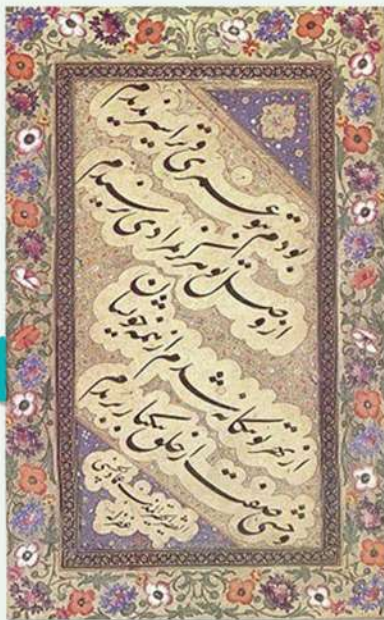 بودم بتو عمری و ترا سیر ندیدم
از وصل تو هرگز بمرادی نرسیدم
از بهر تو بیگانه شدم از همه خویشان
وحشی صفت از خلق بیکبار بریدم
عماد الحسنی